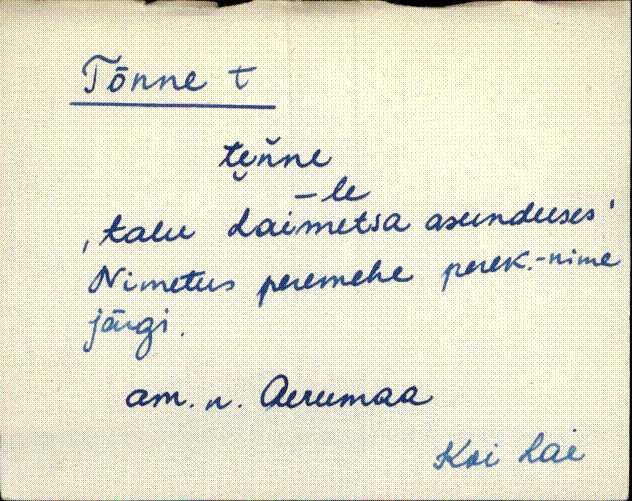 Tõnne t
te̮ňne
–le
‚talu Laimetsa asunduses‘
Nimetus peremehe perek.-nime
järgi.
am. n. Aerumaa
Koi Lai